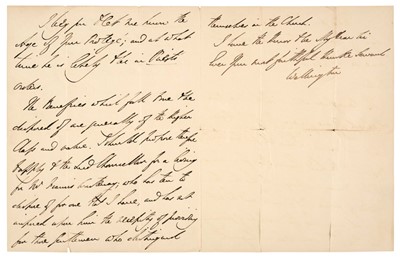 I beg you that
the
age of your Protegé; and at what
time he is likely to be in Priests
orders.
The Benefices which fall to the
disposal of are generally of the higher
Class and value. I should propose therefore
to apply to the Lord Chancellor for a living
for Mr; who has ten to
dispose of for one that I have, and has not
imposed upon him the necessity of providing
for those Gentlemen who distinguish
themselves in the Church.
I have the Honor to be My dear Sir
Ever Your most faithful humble Servant
Wellington